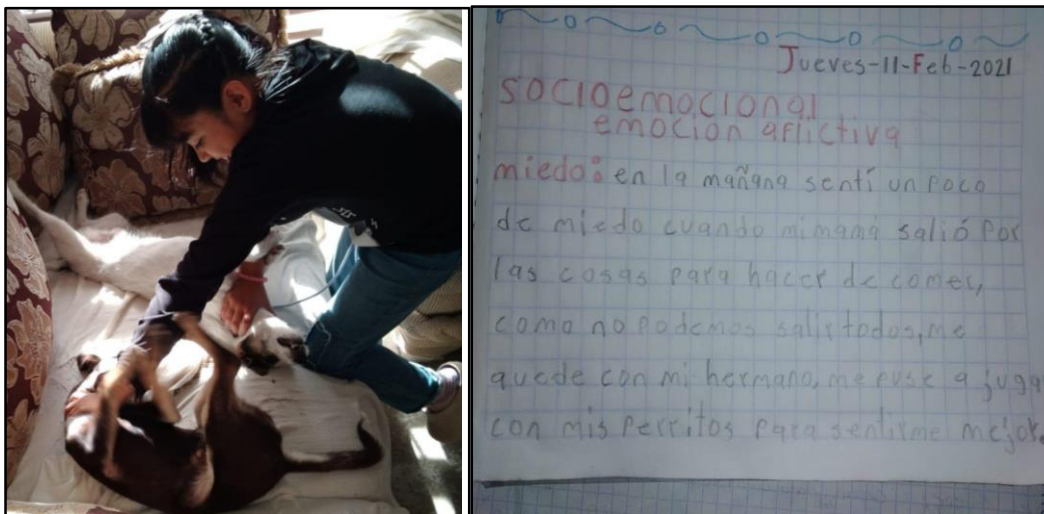 Jueves-11-Feb-2021
socioemocional
emoción aflictiva
miedo: en la mañana sentí un poco
de miedo cuando mi mamá salió por
las cosas para hacer de comer,
como no podemos salir todos, me
quede con mi hermano, me puse a juga
con mis perritos para sentirme mejor.